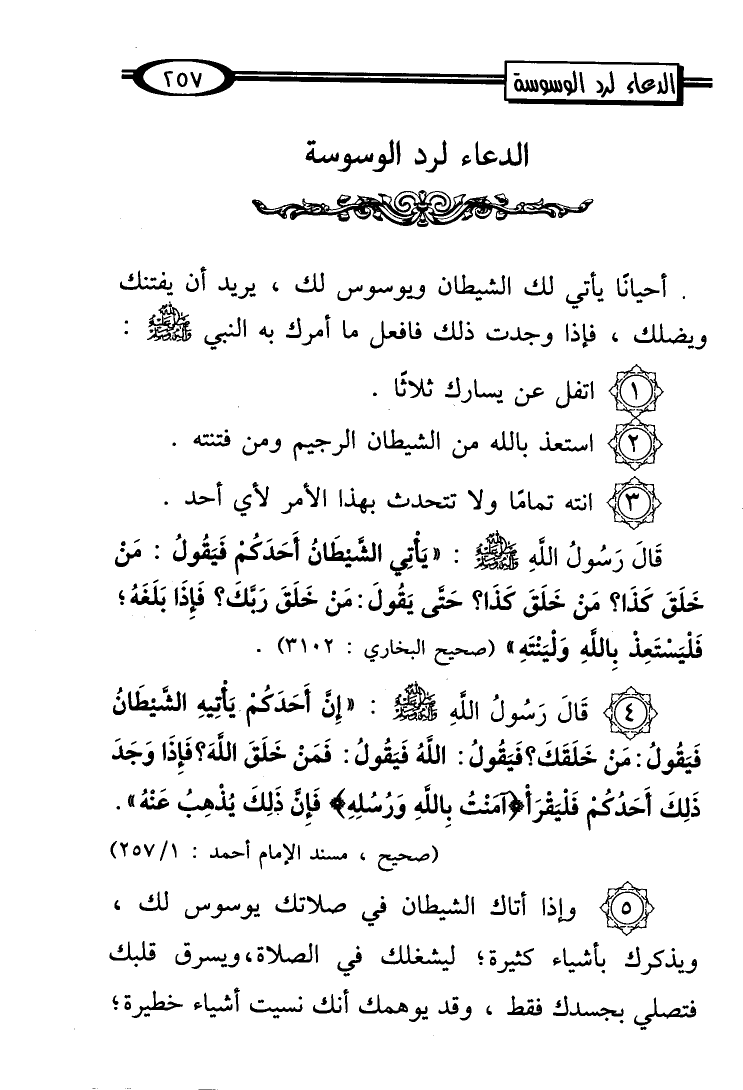 الدعاء لرد الوسوسة
٢٥٧
الدعاء لرد الوسوسة
. أحيانًا يأتي لك الشيطان ويوسوس لك ، يريد أن يفتنك
ويضلك ، فإذا وجدت ذلك فافعل ما أمرك به النبي ﷺ :
١ اتفل عن يسارك ثلاثًا .
٢ استعذ بالله من الشيطان الرجيم ومن فتنته .
٣ انته تمامًا ولا تتحدث بهذا الأمر لأي أحد .
قَالَ رَسُولُ اللَّهِ ﷺ : «يَأْتِي الشَّيْطَانُ أَحَدَكُمْ فَيَقُولُ : مَنْ
خَلَقَ كَذَا؟ مَنْ خَلَقَ كَذَا؟ حَتَّى يَقُولَ: مَنْ خَلَقَ رَبَّكَ؟ فَإِذَا بَلَغَهُ؛
فَلْيَسْتَعِذْ بِاللَّهِ وَلْيَنْتَهِ» (صحيح البخاري : ٣١٠٢) .
٤ قَالَ رَسُولُ اللَّهِ ﷺ : «إِنَّ أَحَدَكُمْ يَأْتِيهِ الشَّيْطَانُ
فَيَقُولُ: مَنْ خَلَقَكَ؟ فَيَقُولُ: اللَّهُ فَيَقُولُ: فَمَنْ خَلَقَ اللَّهَ؟ فَإِذَا وَجَدَ
ذَلِكَ أَحَدُكُمْ فَلْيَقْرَأْ ﴿آمَنْتُ بِاللَّهِ وَرُسُلِهِ﴾ فَإِنَّ ذَلِكَ يُذْهِبُ عَنْهُ» .
(صحيح ، مسند الإمام أحمد : ٢٥٧/١)
٥ وإذا أتاك الشيطان في صلاتك يوسوس لك ،
ويذكرك بأشياء كثيرة؛ ليشغلك في الصلاة، ويسرق قلبك
فتصلي بجسدك فقط ، وقد يوهمك أنك نسيت أشياء خطيرة؛